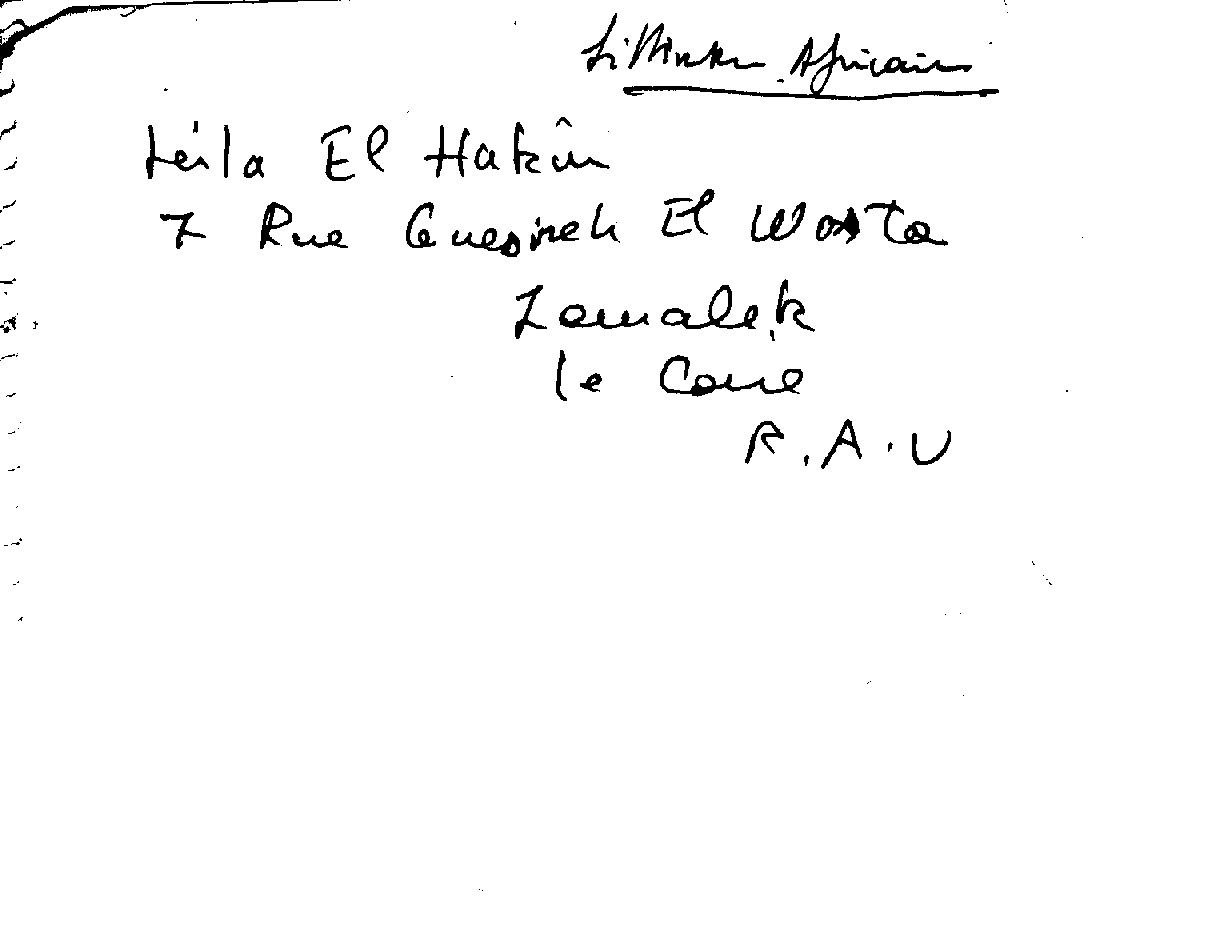 Littérature Africaine
Leila El Hakim
7 Rue Guesireh El Wosta
Zamalek
le Caire
R.A.U